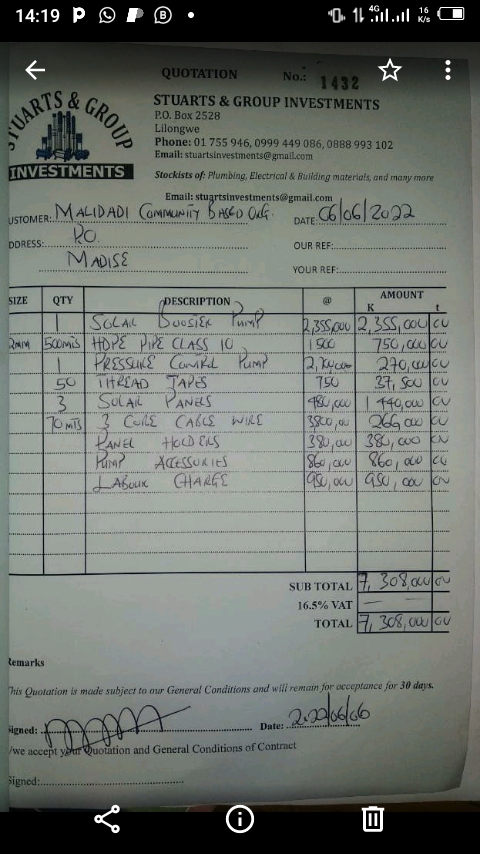 14:19
4G
16 K/s
QUOTATION No.: 1432
STUARTS & GROUP
INVESTMENTS
STUARTS & GROUP INVESTMENTS
P.O. Box 2528
Lilongwe
Phone: 01 755 946, 0999 449 086, 0888 993 102
Email: stuartsinvestments@gmail.com
Stockists of: Plumbing, Electrical & Building materials, and many more
Email: stuartsinvestments@gmail.com
USTOMER: MALIDADI COMMUNITY BASED ORG. DATE: 06/06/2022
DDRESS: P.O. OUR REF:
MADISE YOUR REF:
SIZE QTY DESCRIPTION @ AMOUNT
K t
1 SOLAR BOOSTER PUMP 2,355,000 2,355,000 00
2MM 500mts HDPE PIPE CLASS 10 1500 750,000 00
1 PRESSURE CONTROL PUMP 270,000 00
50 THREAD TAPES 750 37,500 00
3 SOLAR PANELS 480,000 1 440,000 00
70 mts 3 CORE CABLE WIRE 3800,00 266,000 00
PANEL HOLDERS 380,000 380,000 00
PUMP ACCESSORIES 860,000 860,000 00
LABOUR CHARGE 950,000 950,000 00
SUB TOTAL 7,308,000 00
16.5% VAT
TOTAL 7,308,000 00
Remarks
This Quotation is made subject to our General Conditions and will remain for acceptance for 30 days.
Signed: Date: 2.22/06/06
/we accept your Quotation and General Conditions of Contract
Signed: